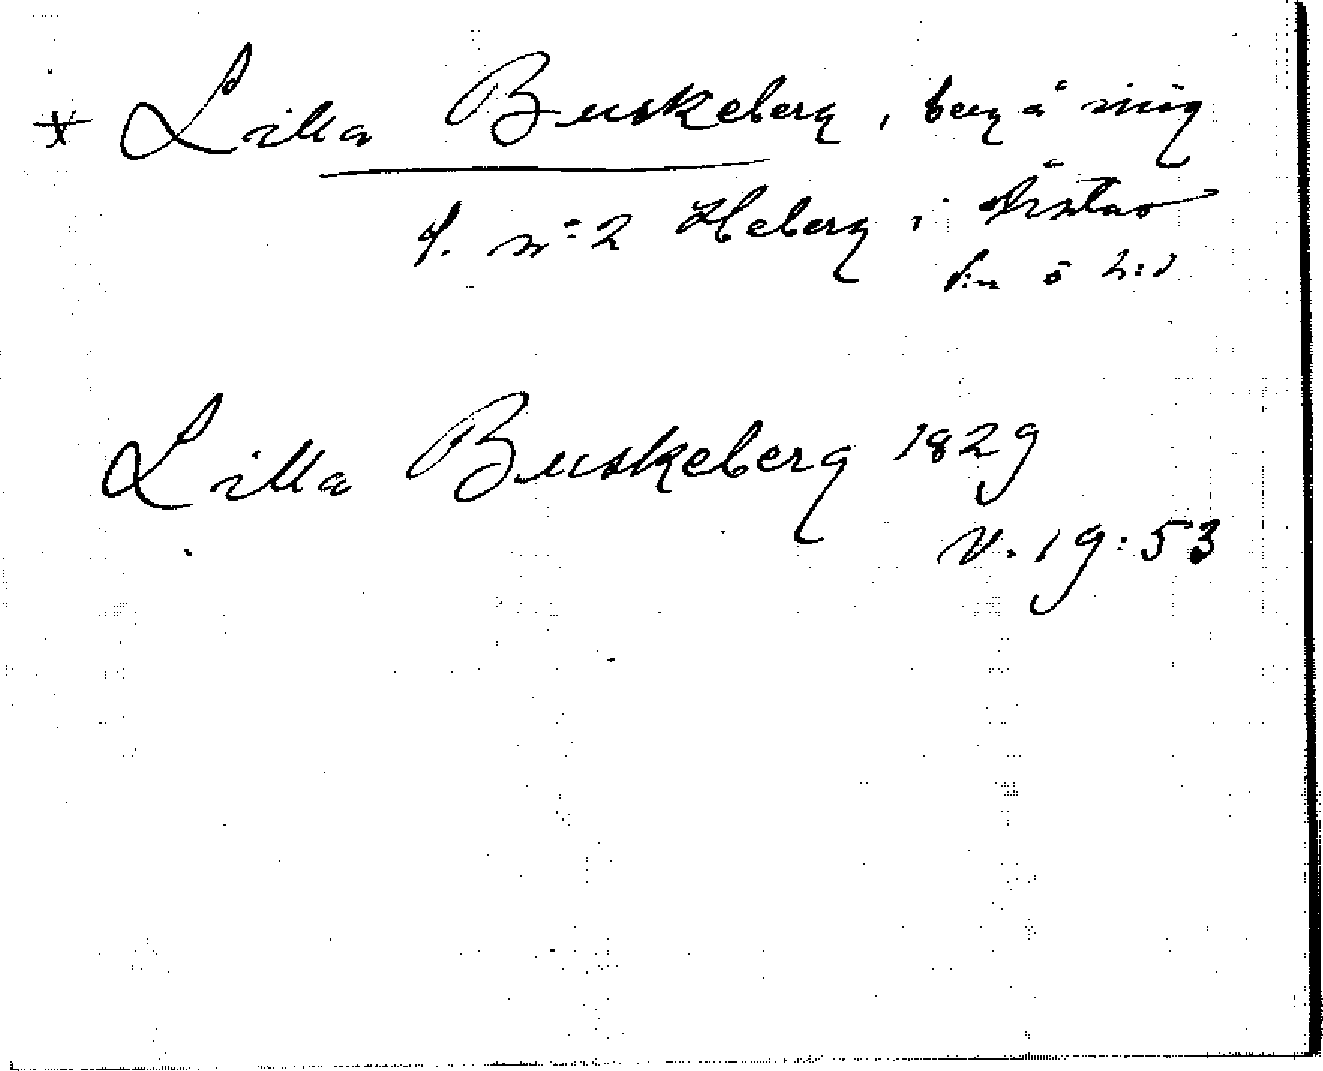 * Lilla Buskeberg, berg å mig
f. nº 2 Heberg i Årstad
sn o h:d
Lilla Buskeberg 1829
V. 19:53